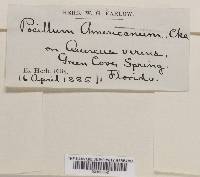 HERB. W. G. FARLOW.
Pocillum Americanum. Cke
on Quercus virens,
Green Cove Spring.
Ex Herb. Ellis.
16 April 1885 Florida.